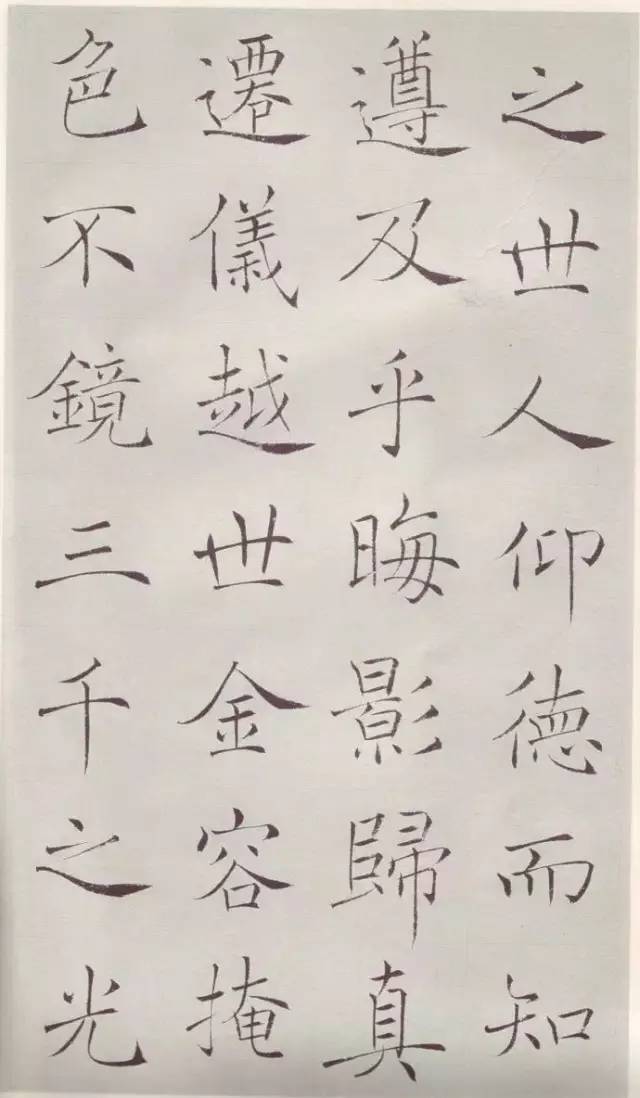 之世人仰德而知
遵及乎晦影歸真
遷儀越世金容掩
色不鏡三千之光